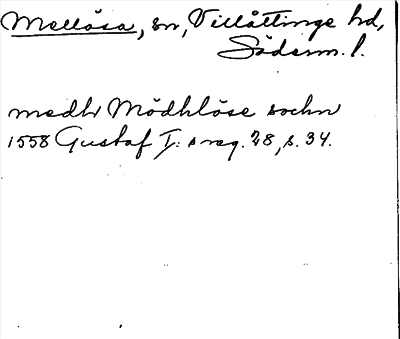 Mellösa, sn, Villåttinge hd,
Söderm. l.
medh Mödhlöse sochn
1558 Gustaf I:s reg. 28, s. 34.